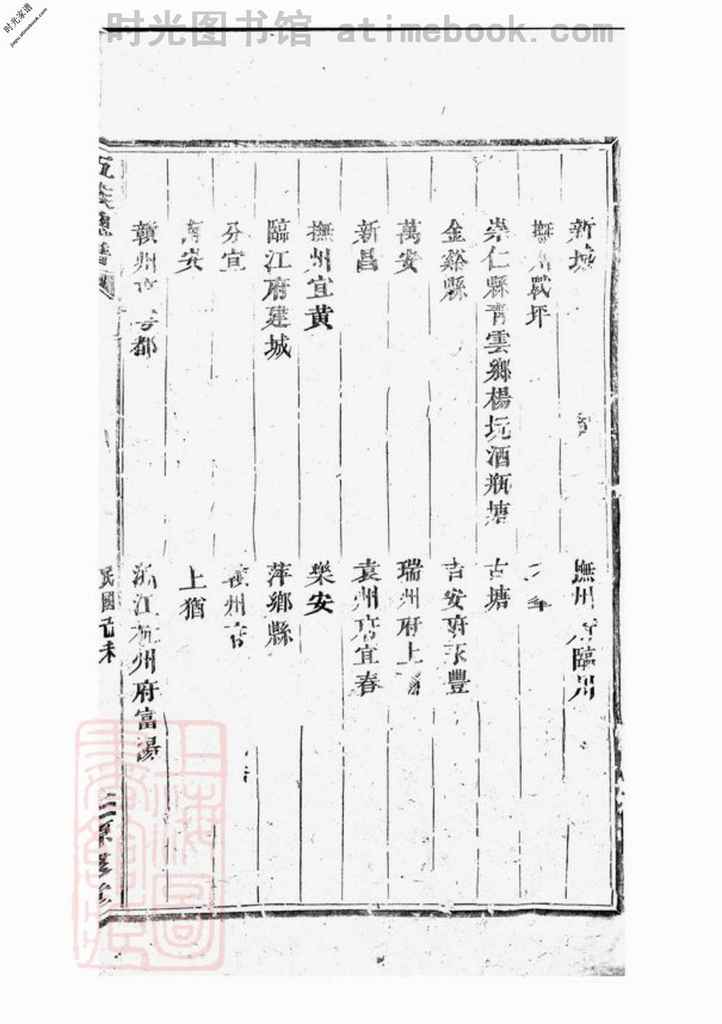 时光图书馆 atimebook.com
时光家谱
jiapu.atimebook.com
新城
撫州府臨川
撫州戰坪
崇仁縣青雲鄉楊坊酒瓶塘
古塘
金谿縣
吉安府永豐
萬安
瑞州府上
新昌
袁州府宜春
撫州宜黄
樂安
臨江府建城
萍鄉縣
分宜
州府
安
上猶
贛州府雩都
浙江杭州府富湯
民國己未
上海圖